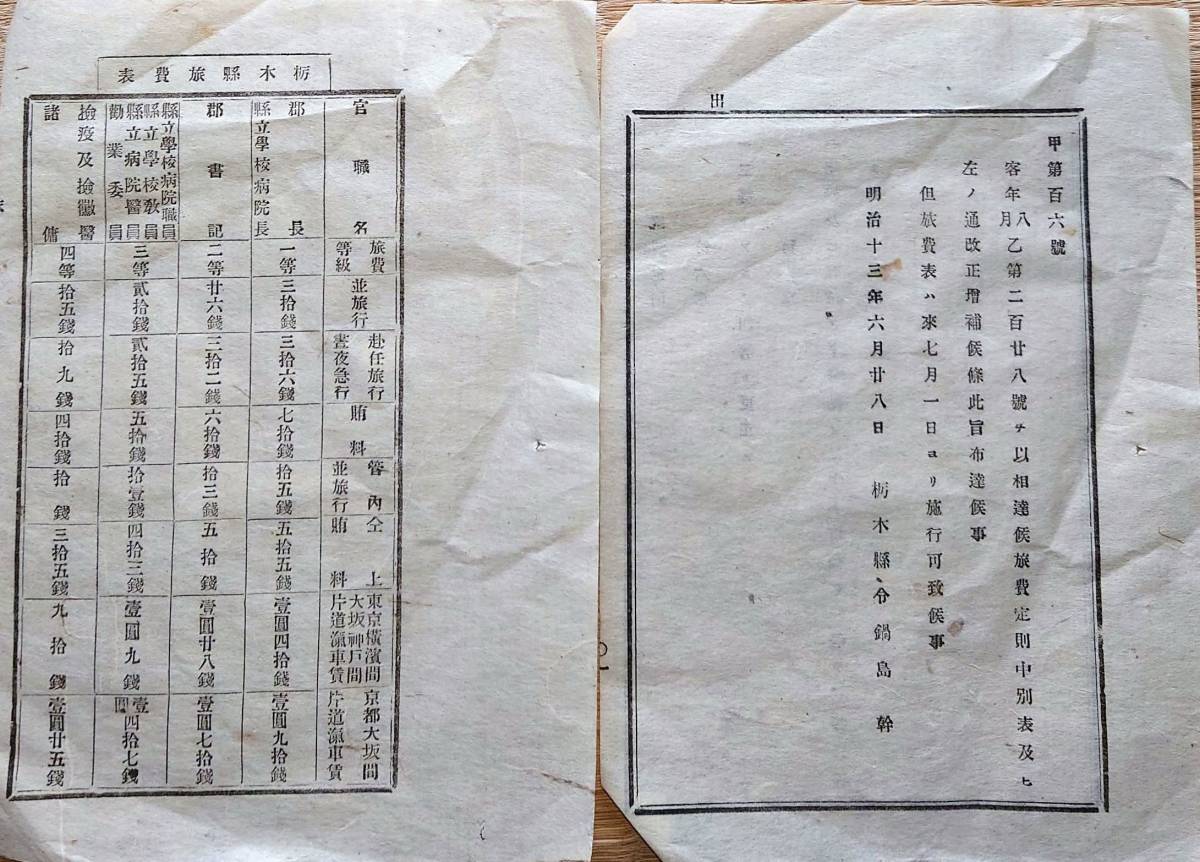 甲第百六號
客年八月乙第二百廿八號ヲ以相達候旅費定則中別表及ヒ
左ノ通改正增補候條此旨布達候事
但旅費表ハ來七月一日ヨリ施行可致候事
明治十三年六月廿八日 栃木縣令鍋島幹
栃木縣旅費表
官職名
旅費
等級
並旅行
赴任旅行
晝夜急行
賄料
管內
並旅行
仝上
賄料
東京橫濱間
大坂神戸間
片道滊車賃
京都大坂間
片道滊車賃
郡長
縣立學校病院長
一等
三拾錢
三拾六錢
七拾錢
拾五錢
五拾五錢
壹圓四拾錢
壹圓九拾錢
郡書記
二等
廿六錢
三拾二錢
六拾錢
拾三錢
五拾錢
壹圓廿八錢
壹圓七拾錢
縣立學校病院職員
縣立學校敎員
縣立病院醫員
勸業委員
三等
貳拾錢
貳拾五錢
五拾錢
拾壹錢
四拾三錢
壹圓九錢
壹圓四拾七錢
撿疫及撿黴醫
諸傭
四等
拾五錢
拾九錢
四拾錢
拾錢
三拾五錢
九拾錢
壹圓廿五錢